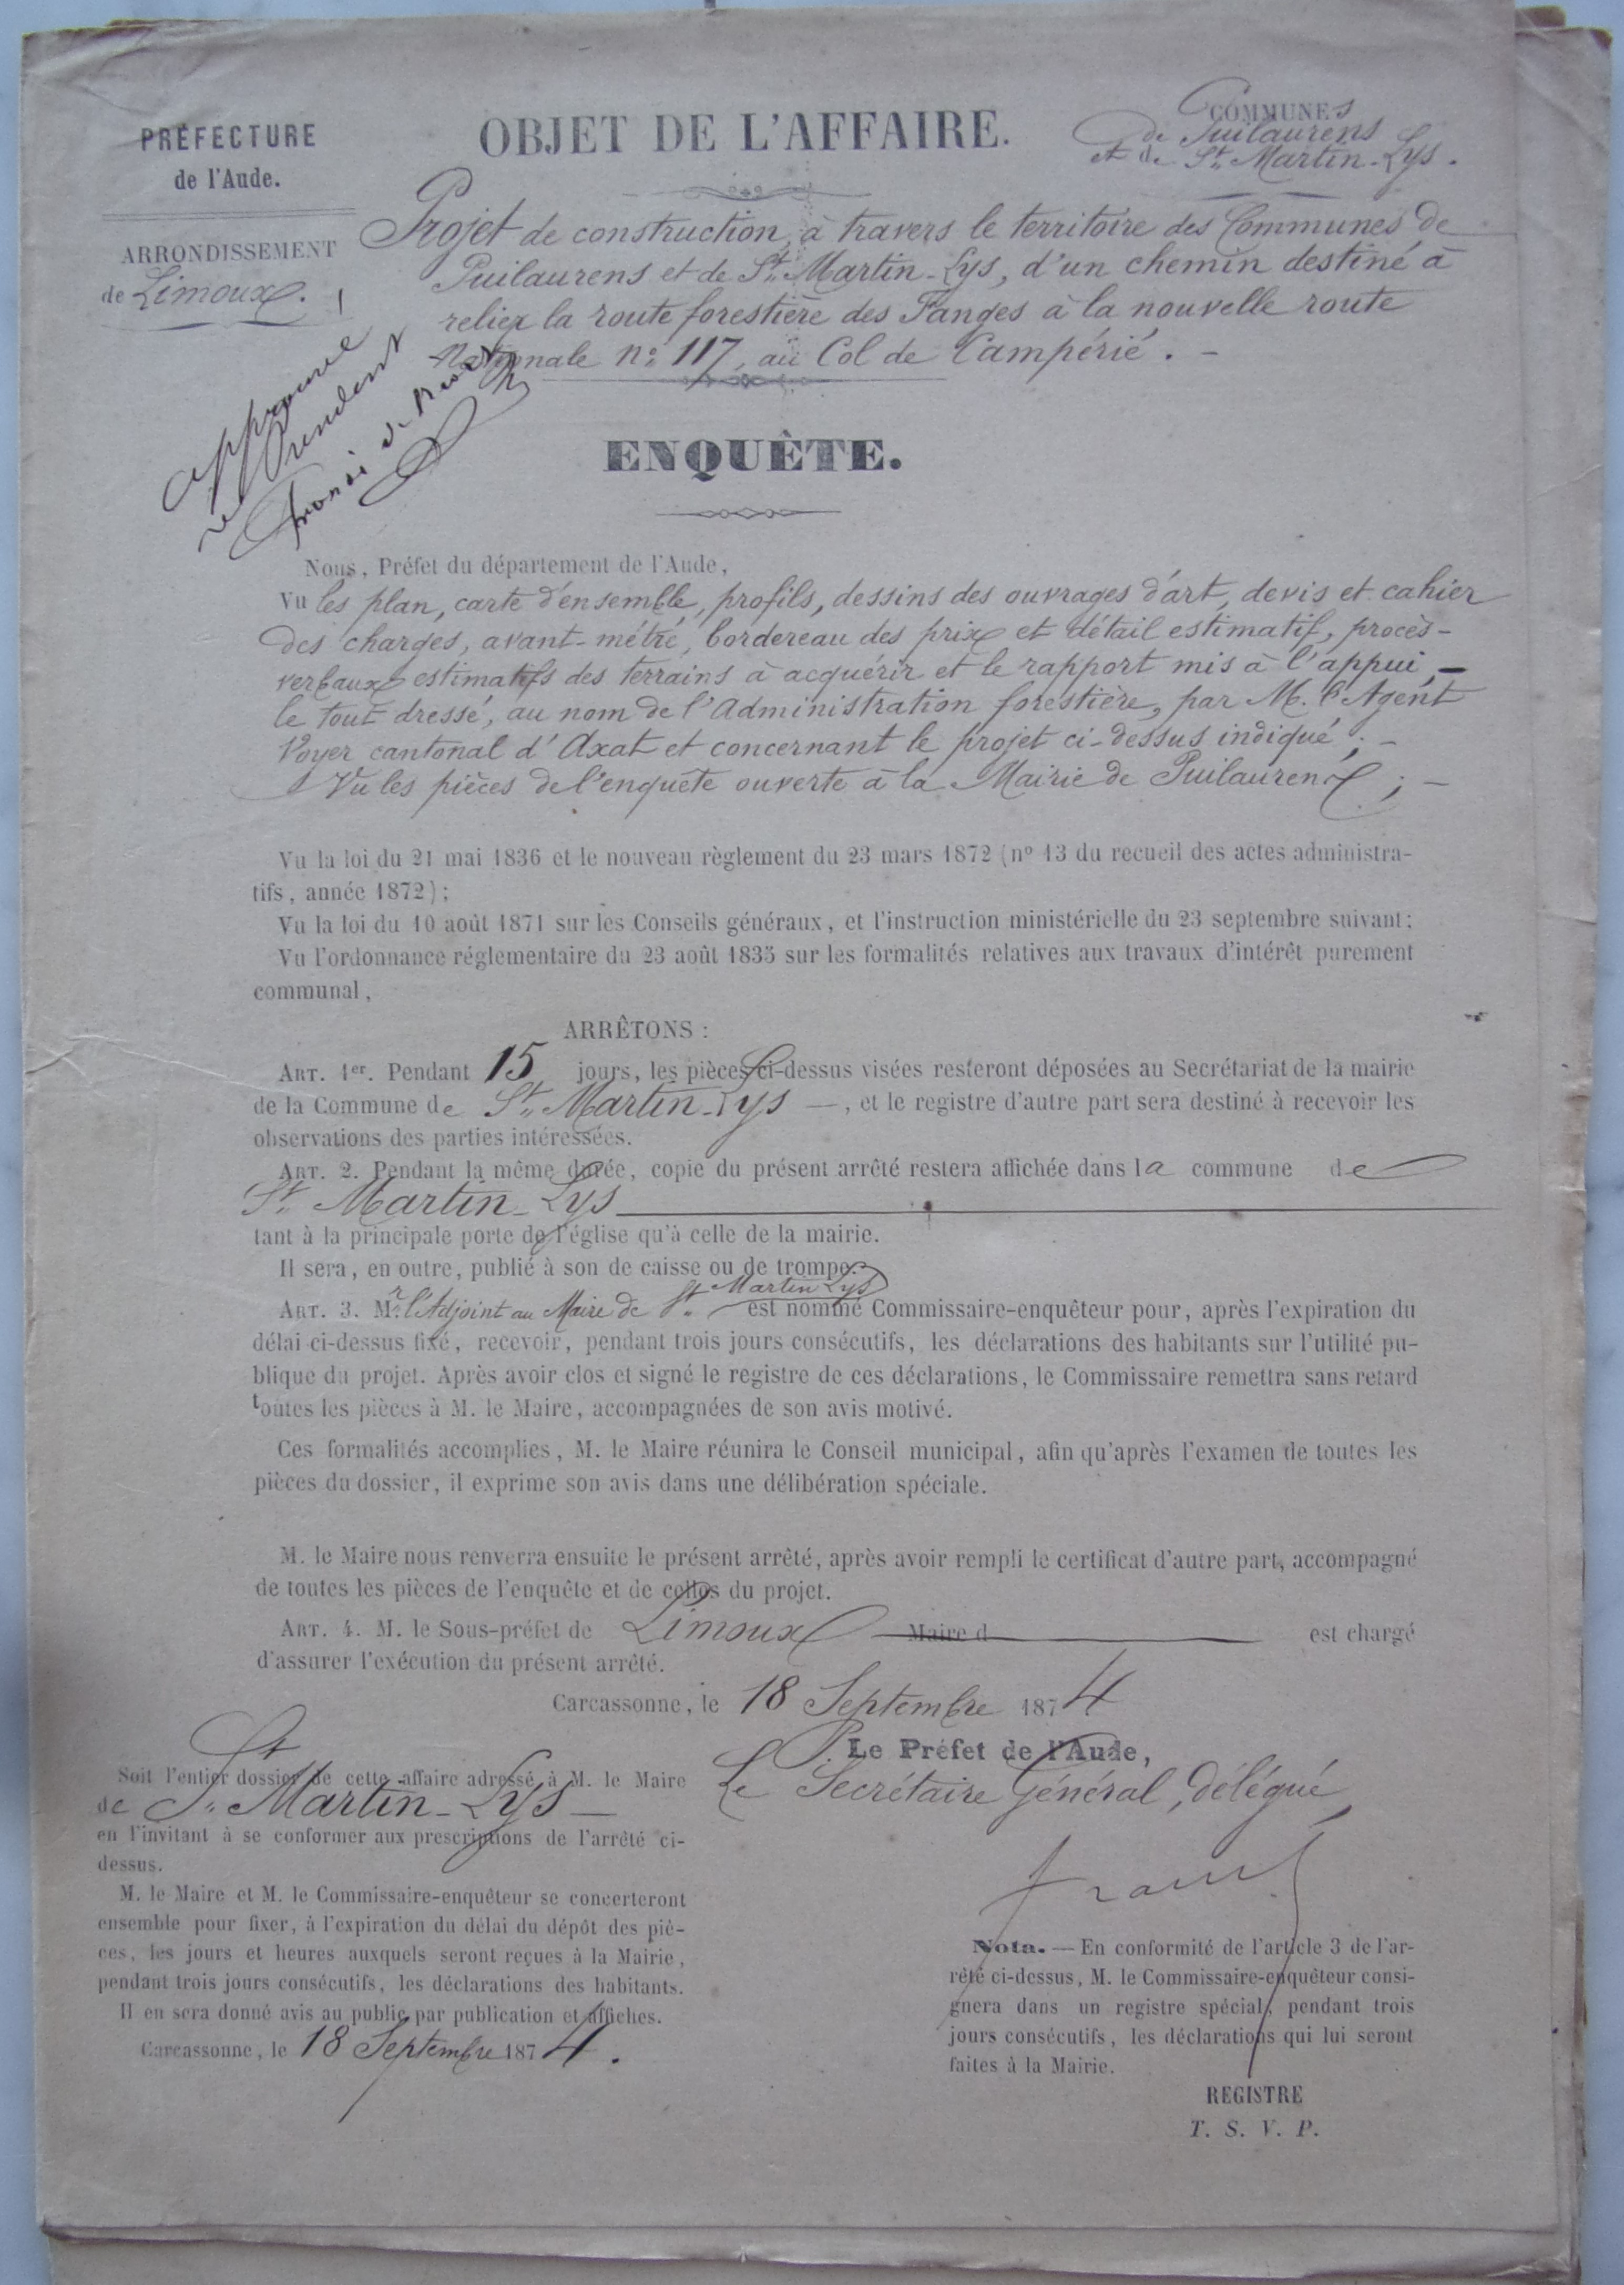 PRÉFECTURE
de l'Aude.
ARRONDISSEMENT
de Limoux.
OBJET DE L'AFFAIRE.
COMMUNES
de Puilaurens
et de St. Martin-Lys.
Projet de construction, à travers le territoire des Communes de
Puilaurens et de St. Martin-Lys, d'un chemin destiné à
relier la route forestière des Fanges à la nouvelle route
Nationale n: 117, au Col de Campérié. -
approuvé
ENQUÊTE.
Nous, Préfet du département de l'Aude,
Vu les plan, carte d'ensemble, profils, dessins des ouvrages d'art, devis et cahier
des charges, avant-métré, bordereau des prix et détail estimatif, procès-
verbaux estimatifs des terrains à acquérir et le rapport mis à l'appui, —
le tout dressé, au nom de l'Administration forestière, par M. l'Agent
Voyer cantonal d'Axat et concernant le projet ci-dessus indiqué; -
Vu les pièces de l'enquête ouverte à la Mairie de Puilaurens; -
Vu la loi du 21 mai 1836 et le nouveau règlement du 23 mars 1872 (nº 13 du recueil des actes administra-
tifs, année 1872);
Vu la loi du 10 août 1871 sur les Conseils généraux, et l'instruction ministérielle du 23 septembre suivant;
Vu l'ordonnance réglementaire du 23 août 1835 sur les formalités relatives aux travaux d'intérêt purement
communal,
ARRÊTONS :
ART. 1er. Pendant 15 jours, les pièces ci-dessus visées resteront déposées au Secrétariat de la mairie
de la Commune de St. Martin-Lys —, et le registre d'autre part sera destiné à recevoir les
observations des parties intéressées.
ART. 2. Pendant la même durée, copie du présent arrêté restera affichée dans la commune de
St. Martin-Lys
tant à la principale porte de l'église qu'à celle de la mairie.
Il sera, en outre, publié à son de caisse ou de trompe.
ART. 3. Mr. l'Adjoint au Maire de St. Martin Lys est nommé Commissaire-enquêteur pour, après l'expiration du
délai ci-dessus fixé, recevoir, pendant trois jours consécutifs, les déclarations des habitants sur l'utilité pu-
blique du projet. Après avoir clos et signé le registre de ces déclarations, le Commissaire remettra sans retard
toutes les pièces à M. le Maire, accompagnées de son avis motivé.
Ces formalités accomplies, M. le Maire réunira le Conseil municipal, afin qu'après l'examen de toutes les
pièces du dossier, il exprime son avis dans une délibération spéciale.
M. le Maire nous renverra ensuite le présent arrêté, après avoir rempli le certificat d'autre part, accompagné
de toutes les pièces de l'enquête et de celles du projet.
ART. 4. M. le Sous-préfet de Limoux Maire d est chargé
d'assurer l'exécution du présent arrêté.
Carcassonne, le 18 Septembre 1874
P. Le Préfet de l'Aude,
Le Secrétaire Général, délégué,
Soit l'entier dossier de cette affaire adressé à M. le Maire
de St. Martin-Lys —
en l'invitant à se conformer aux prescriptions de l'arrêté ci-
dessus.
M. le Maire et M. le Commissaire-enquêteur se concerteront
ensemble pour fixer, à l'expiration du délai du dépôt des piè-
ces, les jours et heures auxquels seront reçues à la Mairie,
pendant trois jours consécutifs, les déclarations des habitants.
Il en sera donné avis au public par publication et affiches.
Carcassonne, le 18 Septembre 1874.
Nota. — En conformité de l'article 3 de l'ar-
rêté ci-dessus, M. le Commissaire-enquêteur consi-
gnera dans un registre spécial, pendant trois
jours consécutifs, les déclarations qui lui seront
faites à la Mairie.
REGISTRE
T. S. V. P.